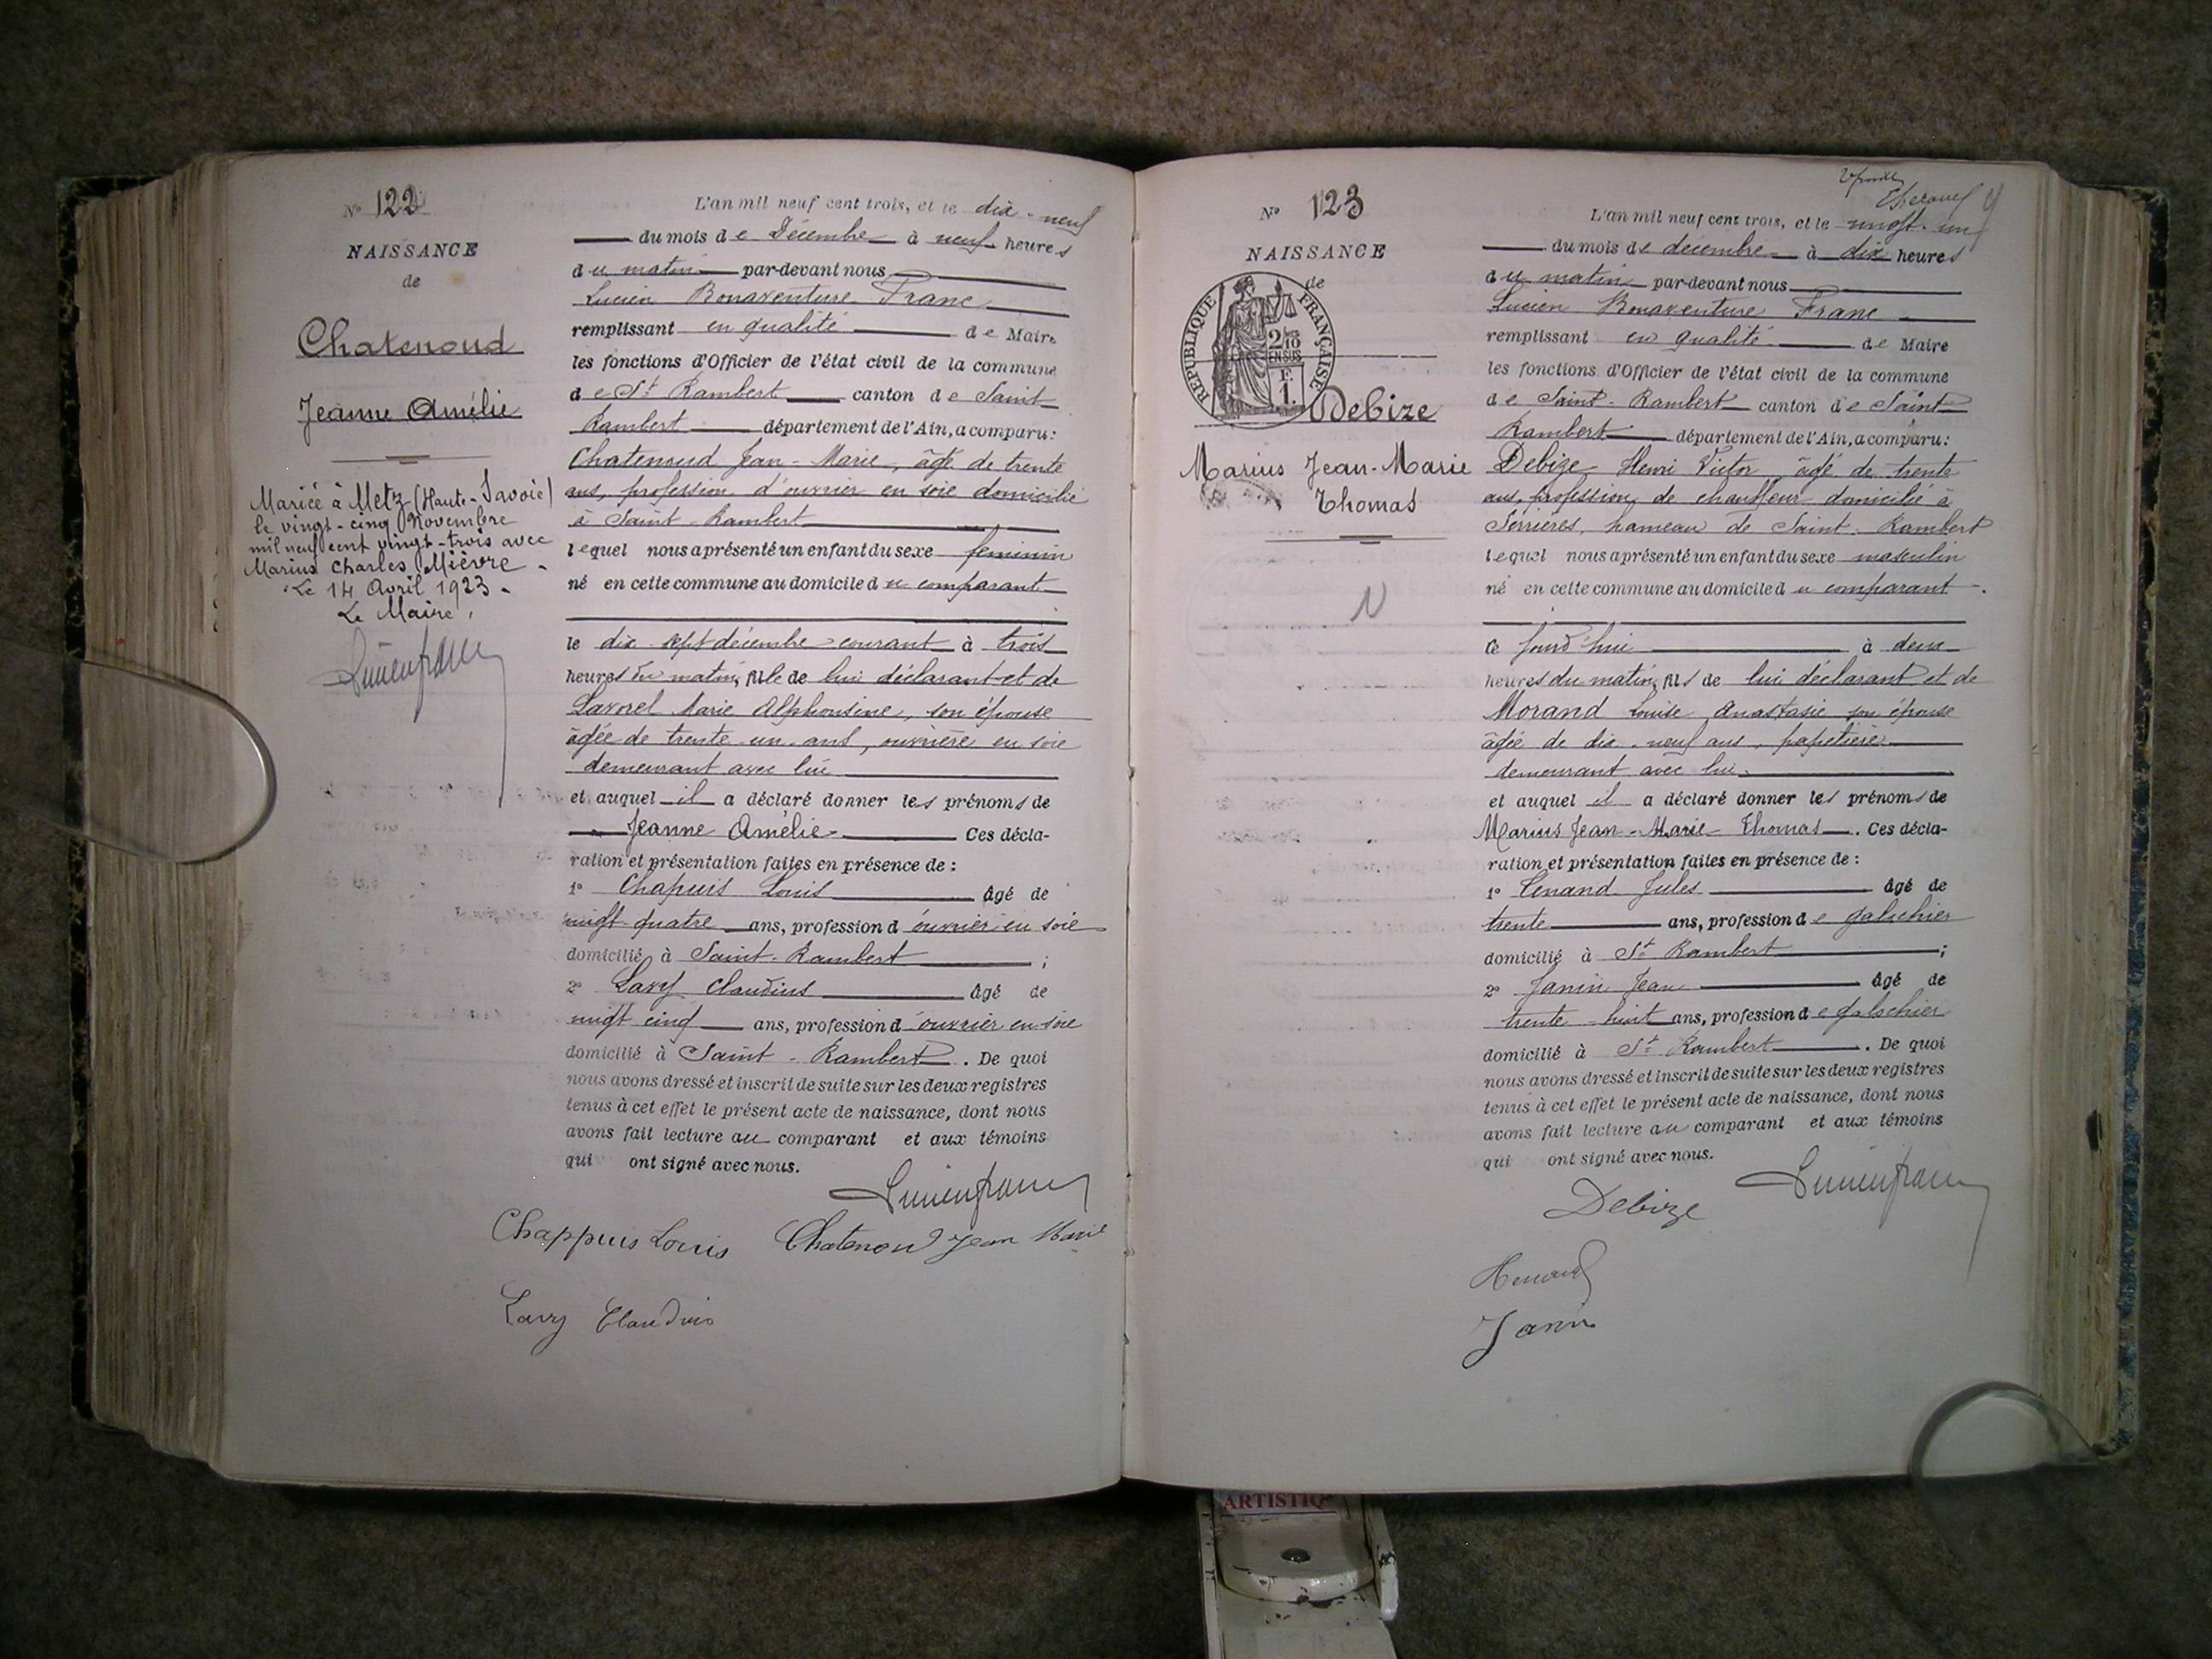 Nº 122
NAISSANCE
de
Chatenoud
Jeanne Amélie
Mariée à Metz (Haute-Savoie)
le vingt-cinq Novembre
mil neuf cent vingt-trois avec
Marius Charles Mièvre.
Le 14 Avril 1923.
Le Maire,
L'an mil neuf cent trois, et le dix-neuf
du mois de Décembre à neuf heures
du matin par-devant nous
Lucien Bonaventure Franc
remplissant en qualité de Maire
les fonctions d'Officier de l'état civil de la commune
de St Rambert canton de Saint
Rambert département de l'Ain, a comparu:
Chatenoud Jean-Marie, âgé de trente
ans, profession d'ouvrier en soie domicilié
à Saint-Rambert
lequel nous a présenté un enfant du sexe feminin
né en cette commune au domicile du comparant
le dix sept décembre courant à trois
heures du matin, fille de lui déclarant et de
Lavorel Marie Alphonsine, son épouse
âgée de trente un ans, ouvrière en soie
demeurant avec lui
et auquel il a déclaré donner les prénoms de
Jeanne Amélie Ces décla-
ration et présentation faites en présence de :
1º Chapuis Louis âgé de
vingt-quatre ans, profession d'ouvrier en soie
domicilié à Saint-Rambert ;
2º Lavy Claudius âgé de
vingt cinq ans, profession d'ouvrier en soie
domicilié à Saint-Rambert. De quoi
nous avons dressé et inscrit de suite sur les deux registres
tenus à cet effet le présent acte de naissance, dont nous
avons fait lecture au comparant et aux témoins
qui ont signé avec nous.
Lucien franc
Chappuis Louis Chatenoud Jean Marie
Lavy Claudius
Nº 123
NAISSANCE
de
RÉPUBLIQUE FRANÇAISE
2/10
EN SUS
F.
1.
Debize
Marius Jean-Marie
Thomas
N
L'an mil neuf cent trois, et le vingt-un
du mois de décembre à dix heures
du matin par-devant nous
Lucien Bonaventure Franc
remplissant en qualité de Maire
les fonctions d'Officier de l'état civil de la commune
de Saint-Rambert canton de Saint
Rambert département de l'Ain, a comparu:
Debize Henri Victor, âgé de trente
ans, profession de chauffeur domicilié à
Serrières, hameau de Saint-Rambert
lequel nous a présenté un enfant du sexe masculin
né en cette commune au domicile du comparant.
Ce jourd'hui à deux
heures du matin, fils de lui déclarant et de
Morand Louise Anastasie son épouse
âgée de dix-neuf ans, papetière
demeurant avec lui.
et auquel il a déclaré donner les prénoms de
Marius Jean-Marie Thomas. Ces décla-
ration et présentation faites en présence de :
1º Jules âgé de
trente ans, profession de
domicilié à St Rambert ;
2º Janin Jean âgé de
trente-huit ans, profession de
domicilié à St Rambert. De quoi
nous avons dressé et inscrit de suite sur les deux registres
tenus à cet effet le présent acte de naissance, dont nous
avons fait lecture au comparant et aux témoins
qui ont signé avec nous.
Debize Lucien franc
Janin
ARTISTIQ